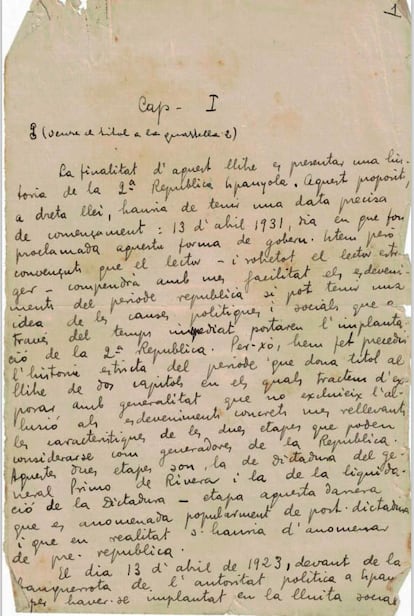 1
Cap - I
(veure el títol a la quartella 2)
La finalitat d'aquest llibre es presentar una his-
toria de la 2ª República Espanyola. Aquest proposit,
a dreta llei, hauria de tenir una data precisa
de començament: 13 d'abril 1931, dia en que fou
proclamada aquesta forma de gobern. Item però
convençuts que el lector - i sobretot el lector estran-
ger - comprendrà amb mes facilitat els esdeveni-
ments del periode republicà si pot tenir una
idea de les causes politiques i socials que a
través del temps inmediat portaren l'implanta-
ció de la 2ª República. Per-xò, hem fet precedir
l'historia estricta del periode que dona títol al
llibre de dos capitols en els quals tractem d'ex-
posar amb generalitat que no exclueix l'al-
lusió als esdeveniments concrets mes rellevants
les caracteristiques de les dues etapes que poden
considerar-se com generadores de la República.
Aquestes dues etapes son, la de dictadura del ge-
neral Primo de Rivera i la de la liquida-
ció de la Dictadura - etapa aquesta darrera
que es anomenada popularment de post-dictadura
i que en realitat s'hauria d'anomenar
de pre-republica.
El dia 13 d'abril de 1923, devant de la
banquerrota de l'autoritat politica a Espan
per haver-se implantat en la lluita social